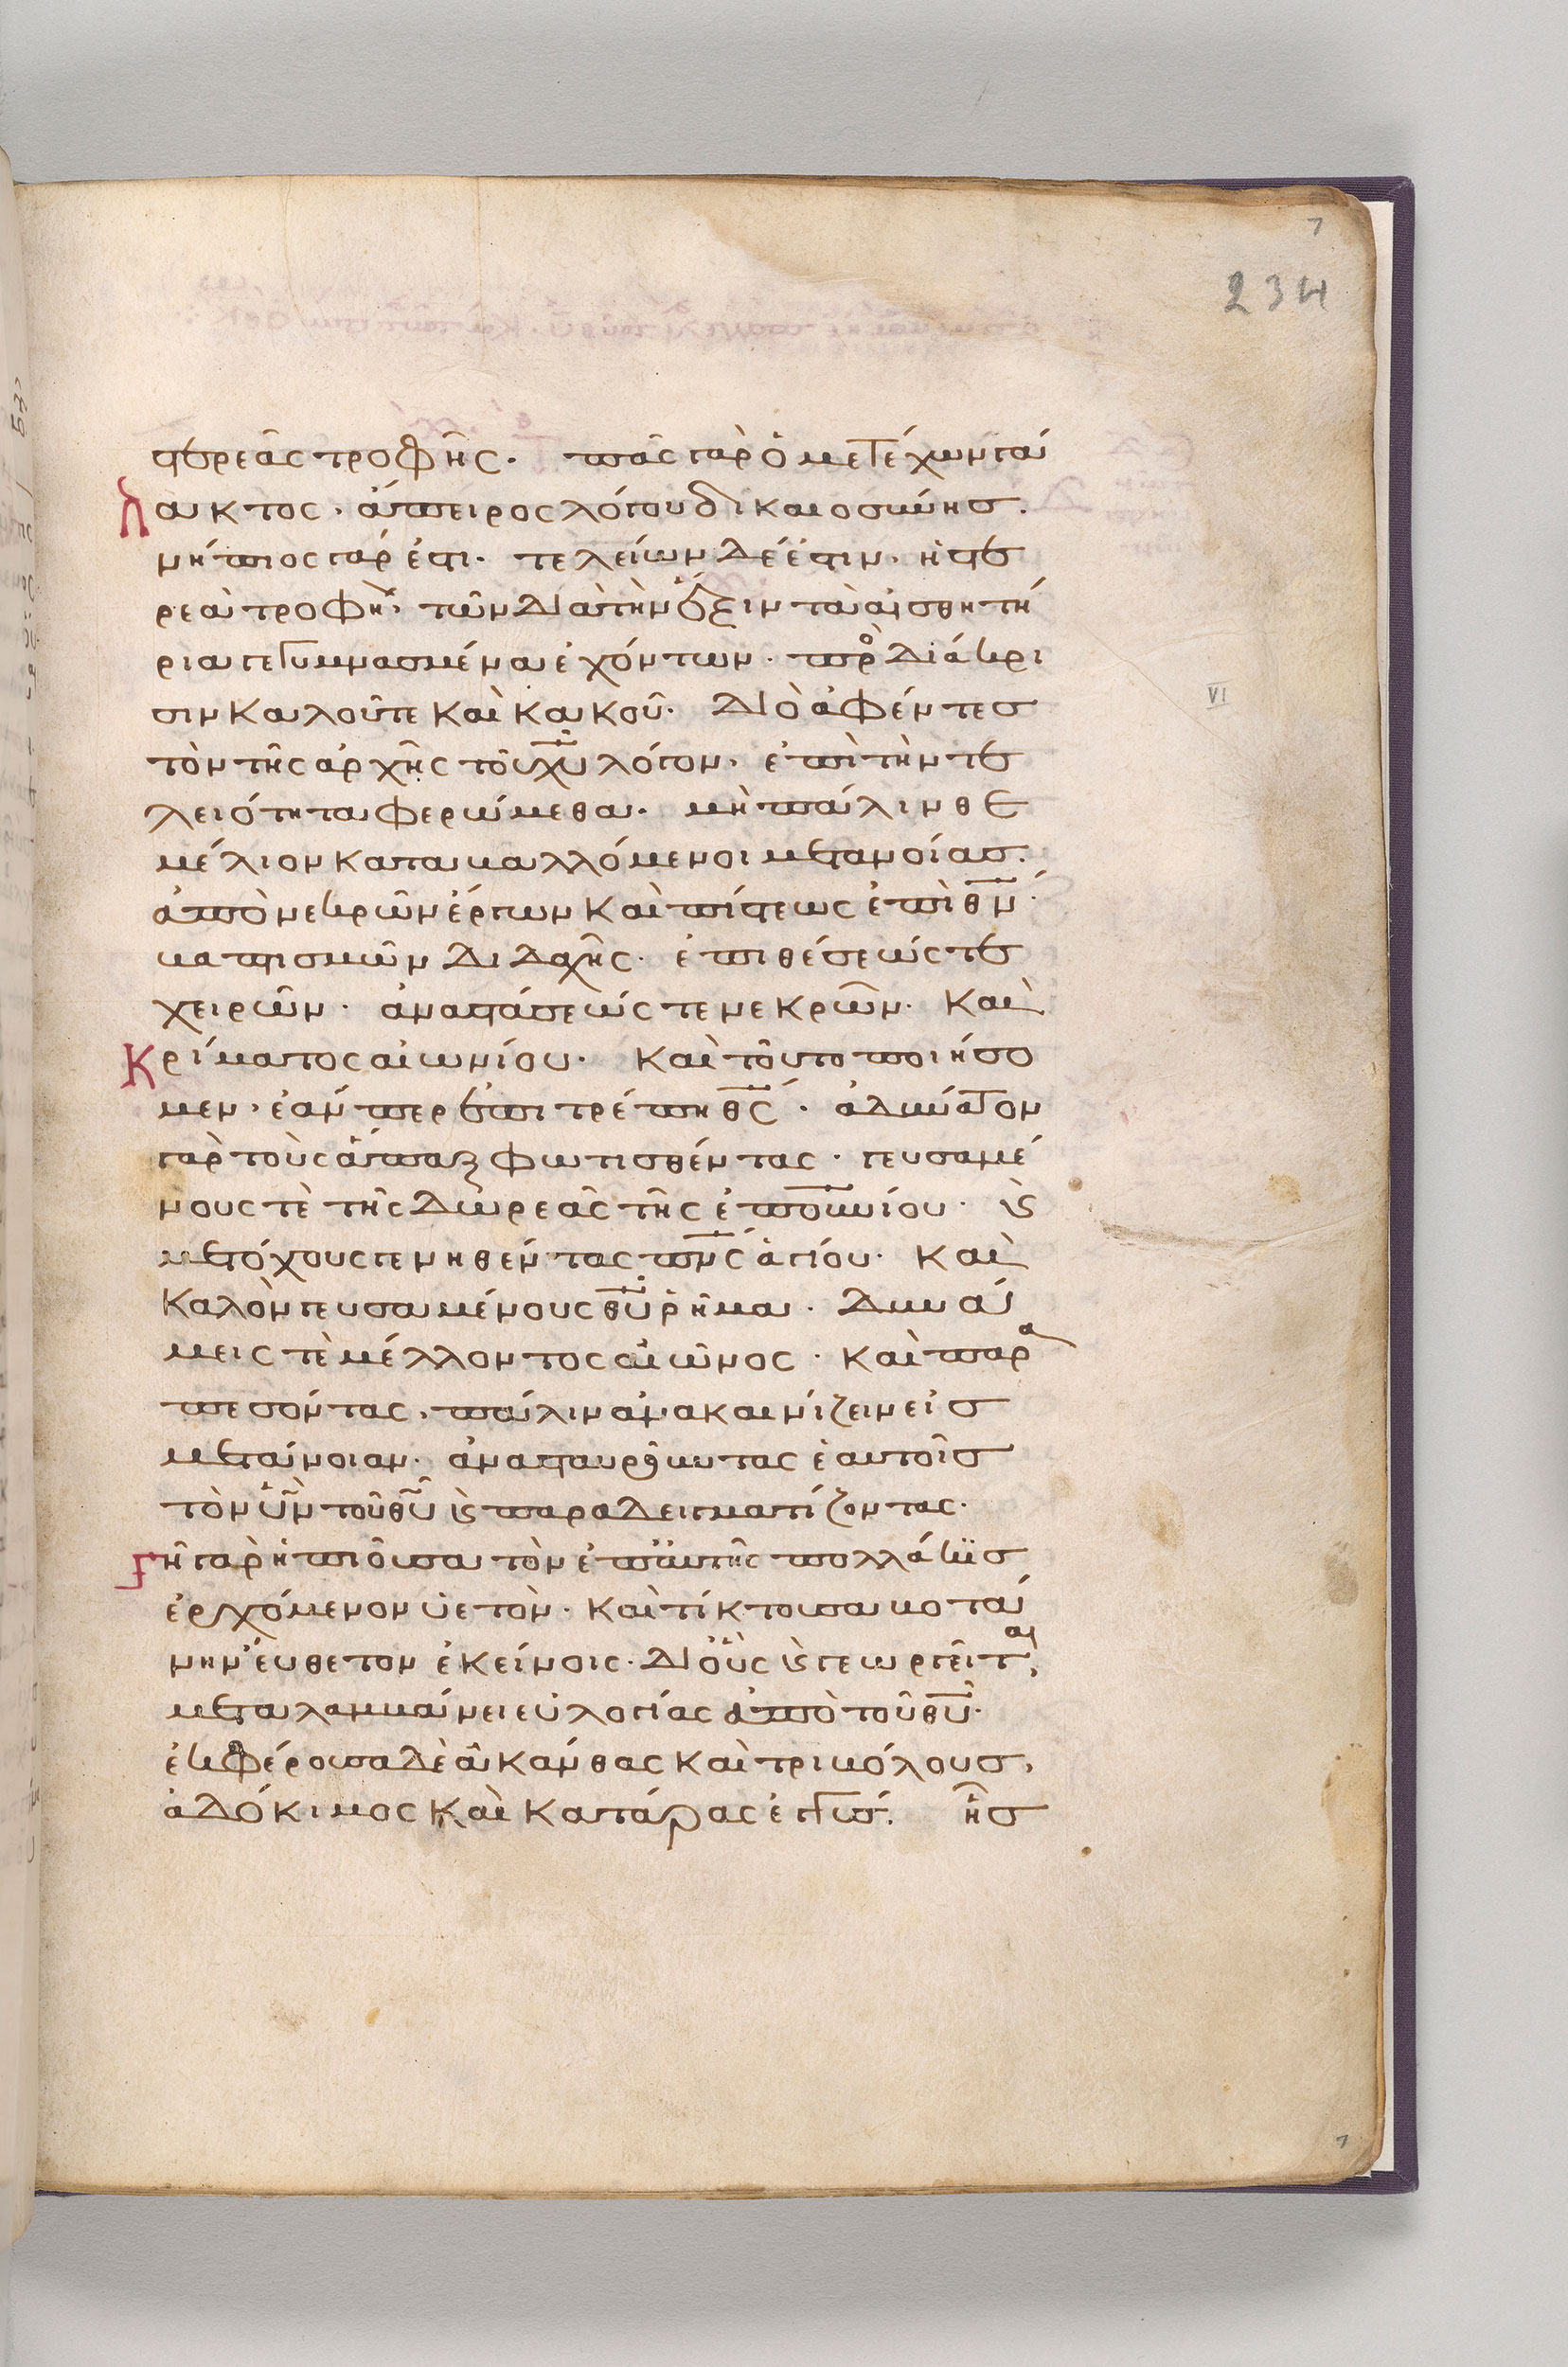 7
234
στερεᾶς τροφῆς. πᾶς γὰρ ὁ μετέχων γά
λακτος, ἄπειρος λόγου δικαιοσύνης.
νήπιος γάρ ἐστι. τελείων δέ ἐστιν, ἡ στε
ρεὰ τροφή, τῶν διὰ τὴν ἕξιν τὰ αἰσθητή
ρια γεγυμνασμένα ἐχόντων. πρὸς διάκρι
σιν καλοῦ τε καὶ κακοῦ. Διὸ ἀφέντες
VI
τὸν τῆς ἀρχῆς τοῦ χυ λόγον, ἐπὶ τὴν τε
λειότητα φερώμεθα. μὴ πάλιν θε
μέλιον καταβαλλόμενοι μετανοίας.
ἀπὸ νεκρῶν ἔργων καὶ πίστεως ἐπὶ θν.
βαπτισμῶν διδαχῆς. ἐπιθέσεώς τε
χειρῶν. ἀναστάσεώς τε νεκρῶν. καὶ
κρίματος αἰωνίου. καὶ τοῦτο ποιήσο
μεν, ἐάν περ ἐπιτρέπη θς. ἀδύνατον
γὰρ τοὺς ἅπαξ φωτισθέντας. γευσαμέ
νους τὲ τῆς δωρεᾶς τῆς ἐπουνίου. καὶ
μετόχους γενηθέντας πνς ἁγίου. καὶ
καλὸν γευσαμένους θυ ῥῆμα. δυνά
μεις τὲ μέλλοντος αἰῶνος. καὶ παρα
πεσόντας, πάλιν ἀνακαινίζειν εἰς
μετάνοιαν. ἀνασταυροῦντας ἑαυτοῖς
τὸν υν τοῦ θυ καὶ παραδειγματίζοντας.
γῆ γὰρ ἡ πιοῦσα τὸν ἐπ' αὐτῆς πολλάκις
ἐρχόμενον ὑετὸν. καὶ τίκτουσα βοτά
νην εὔθετον ἐκείνοις. δι' οὓς καὶ γεωργεῖται,
μεταλαμβάνει εὐλογίας ἀπὸ τοῦ θυ.
ἐκφέρουσα δὲ ἀκάνθας καὶ τριβόλους,
ἀδόκιμος καὶ κατάρας ἐγγύς. ἧς
7